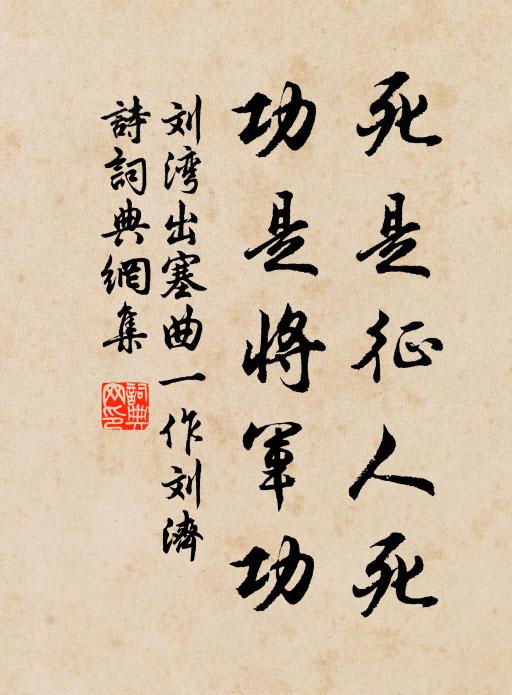 死是征人死
功是將军功
刘湾出塞曲一作刘濟
詩詞典網集
詞典网印